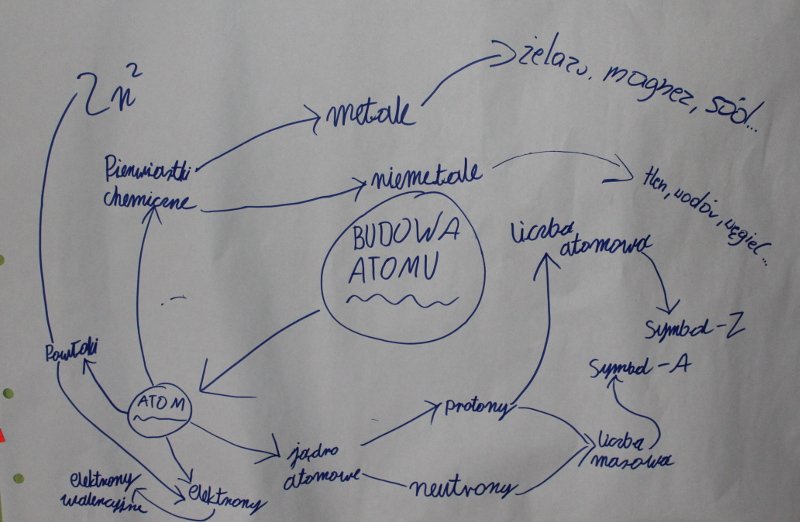 2n²
żelazo, magnez, sód...
metale
Pierwiastki
chemiczne
niemetale
tlen, wodór, węgiel...
BUDOWA
ATOMU
liczba
atomowa
Symbol-Z
Powłoki
Symbol-A
ATOM
protony
liczba
masowa
jądro
atomowe
neutrony
elektrony
walencyjne
elektrony